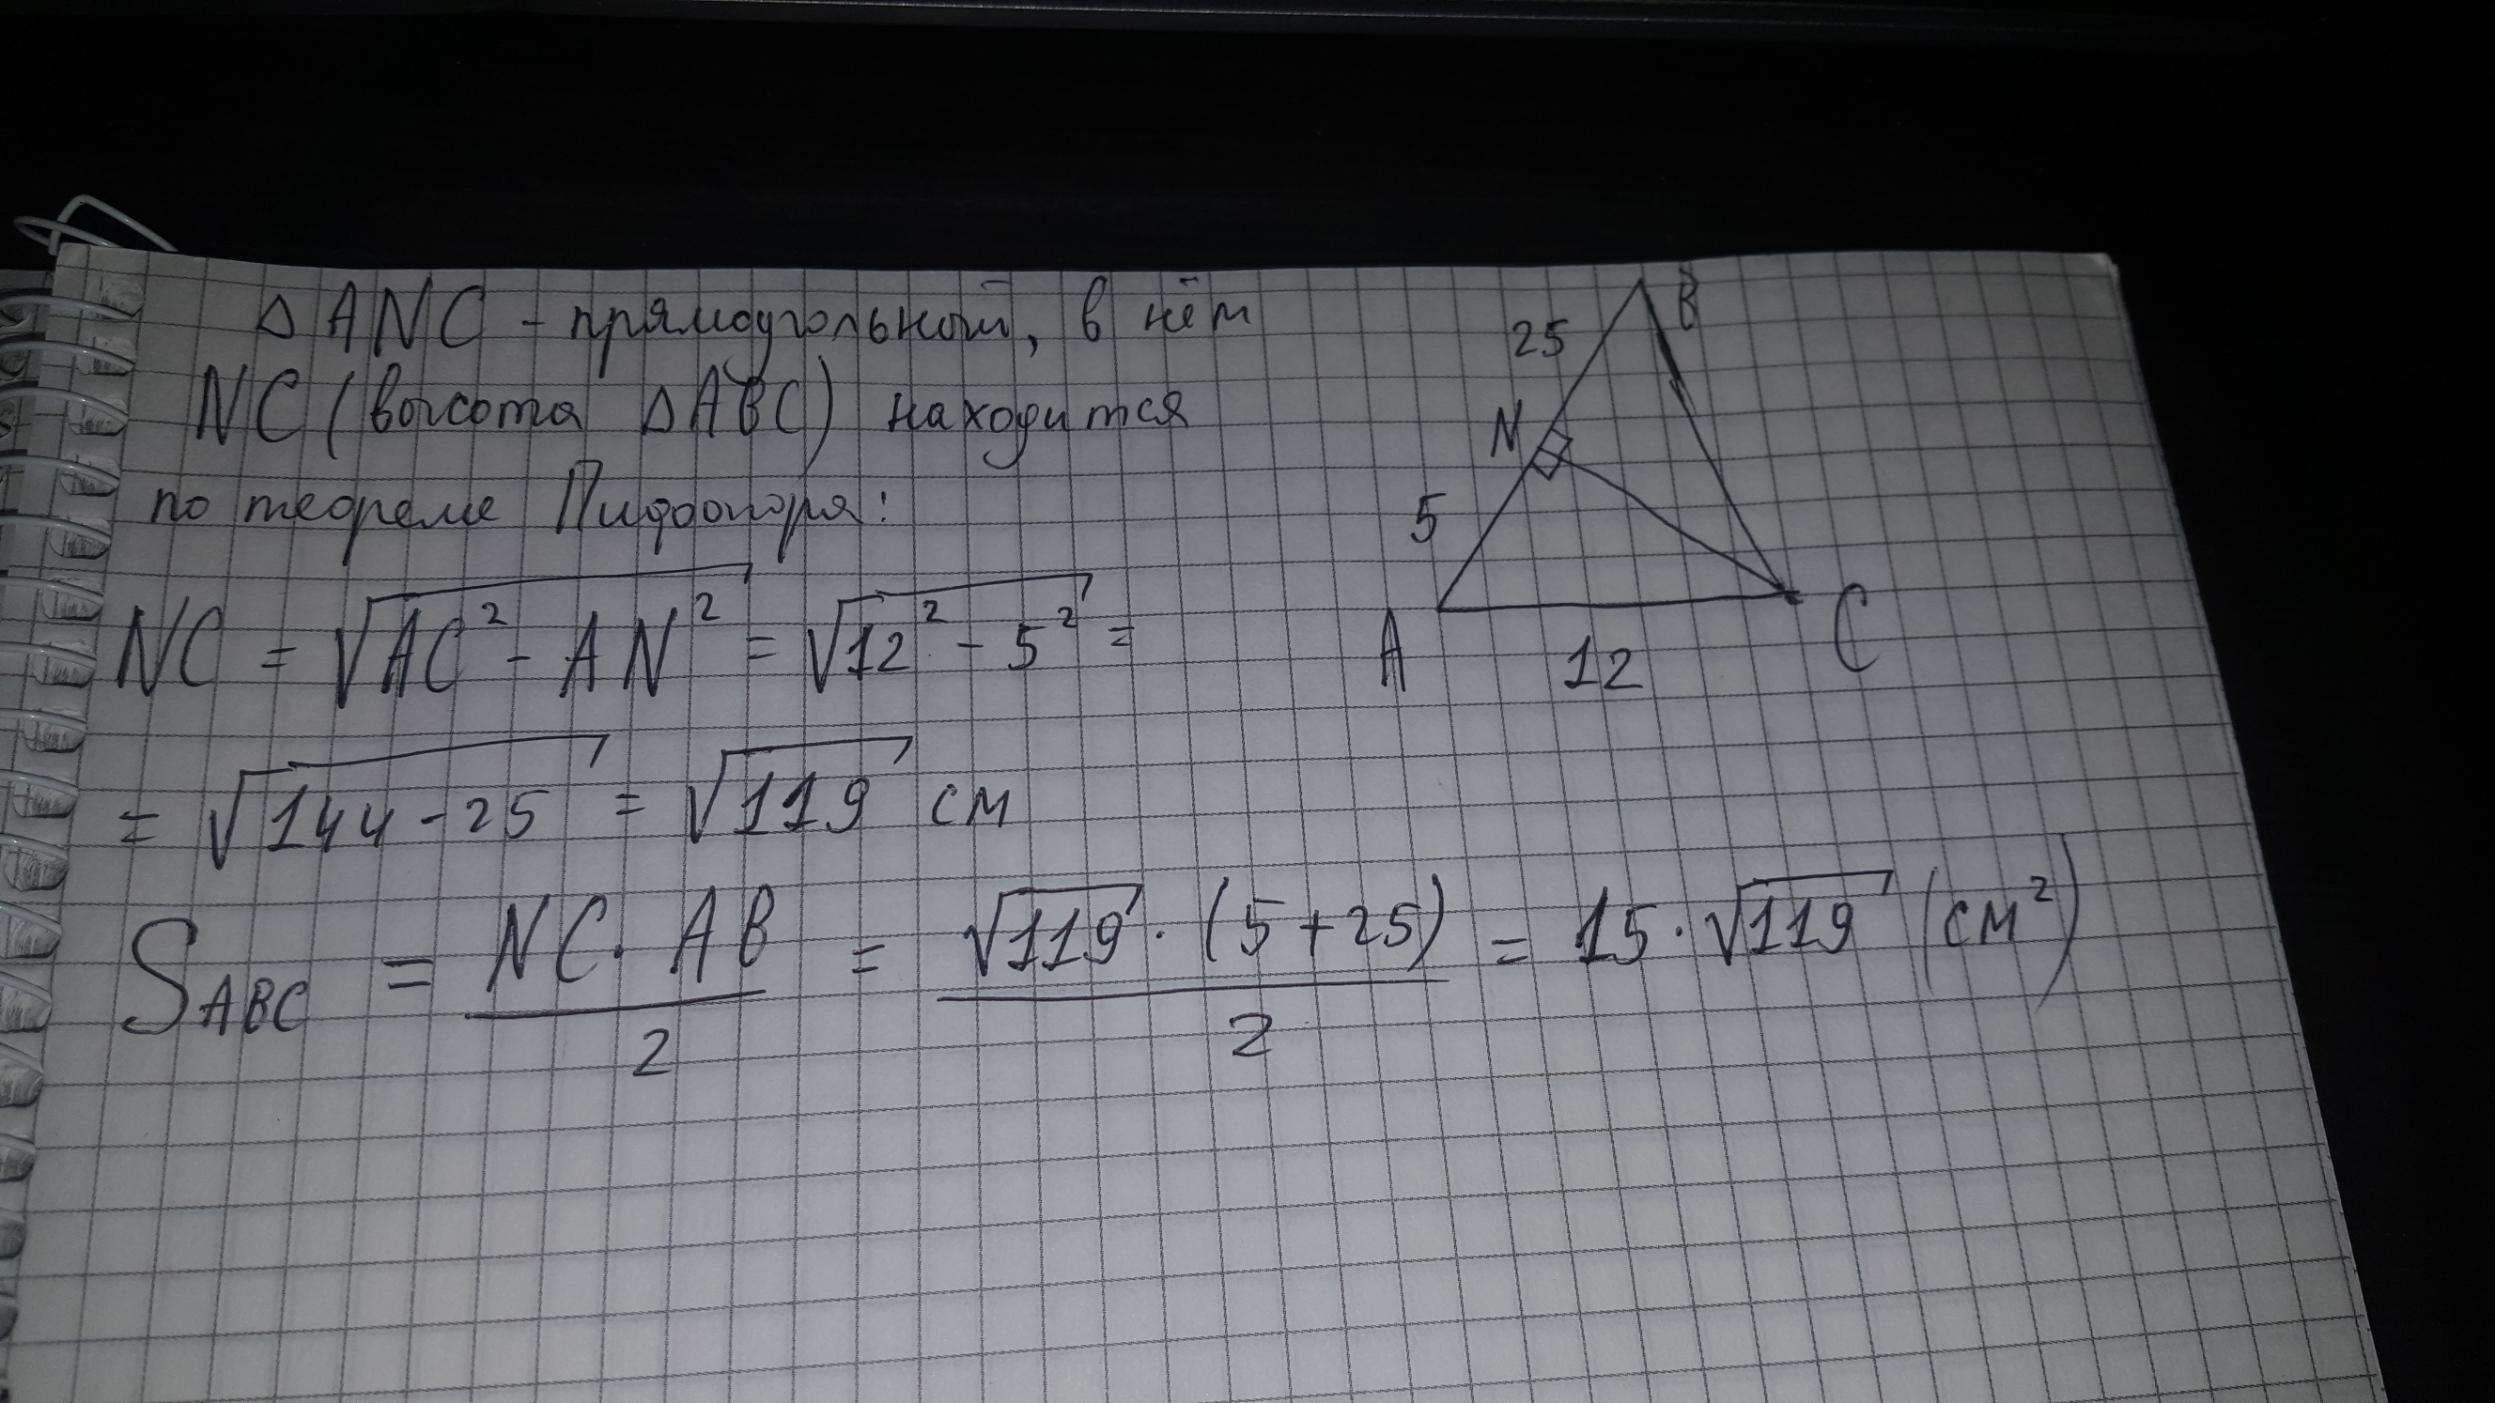 △ANC - прямоугольный, в нём
NC (высота △ABC) находится
по теореме Пифагора:
NC = √(AC² - AN²) = √(12² - 5²) =
= √(144 - 25) = √119 см
S_ABC = (NC · AB)/2 = (√119 · (5 + 25))/2 = 15 · √119 (см²)
B
25
N
5
A
12
C